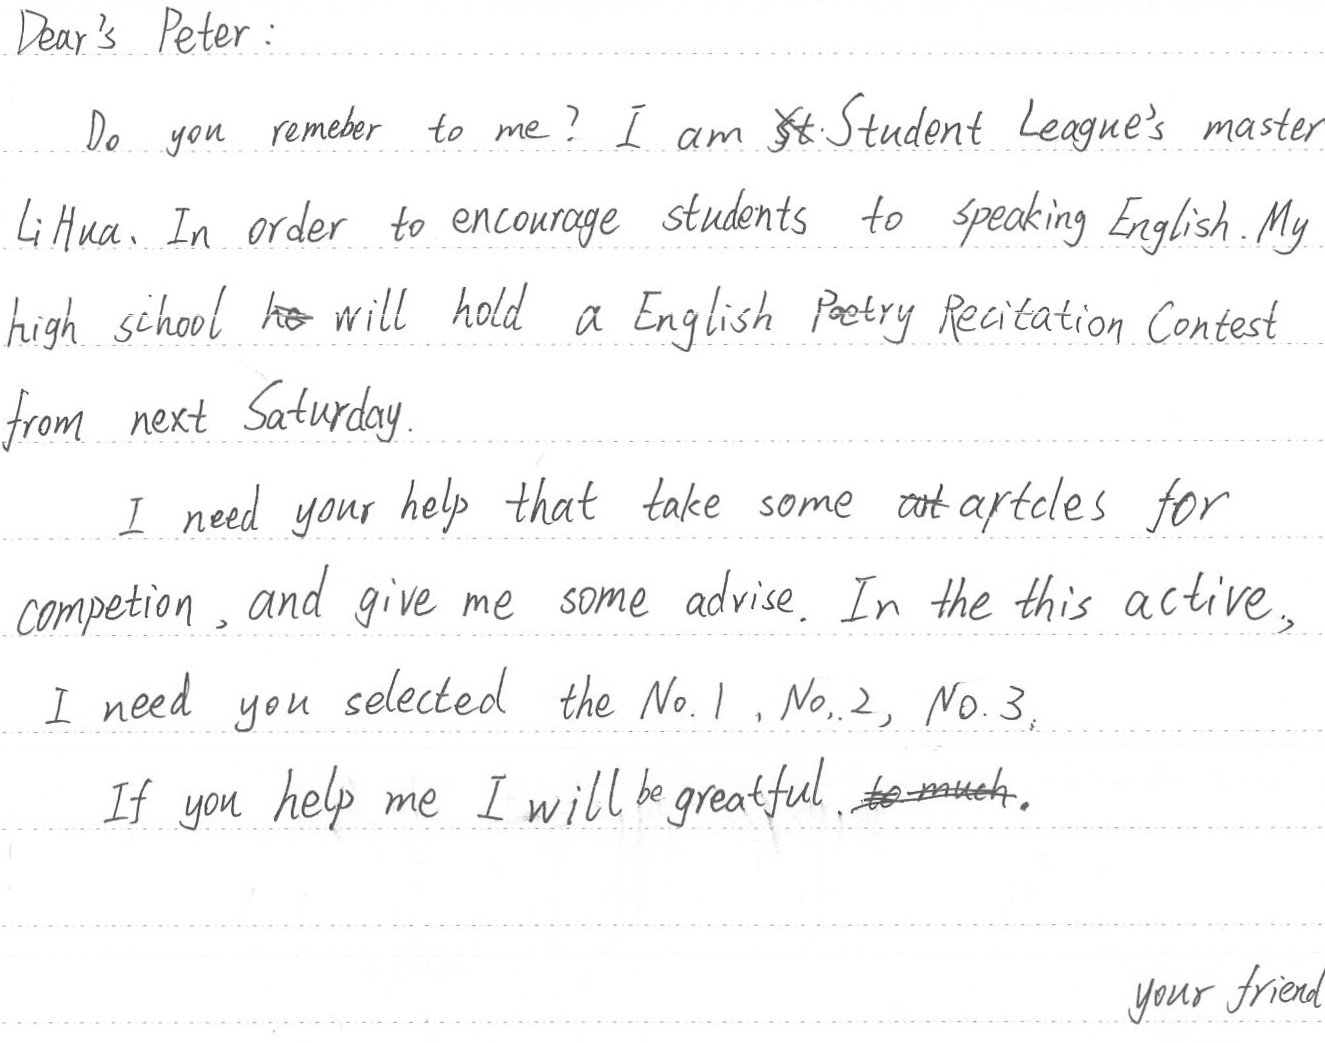 Dear's Peter:
Do you remeber to me? I am Student League's master
Li Hua. In order to encourage students to speaking English. My
high school will hold a English Poetry Recitation Contest
from next Saturday.
I need your help that take some artcles for
competion, and give me some advise. In the this active,
I need you selected the No.1, No.2, No.3.
If you help me I will be greatful.
your friend